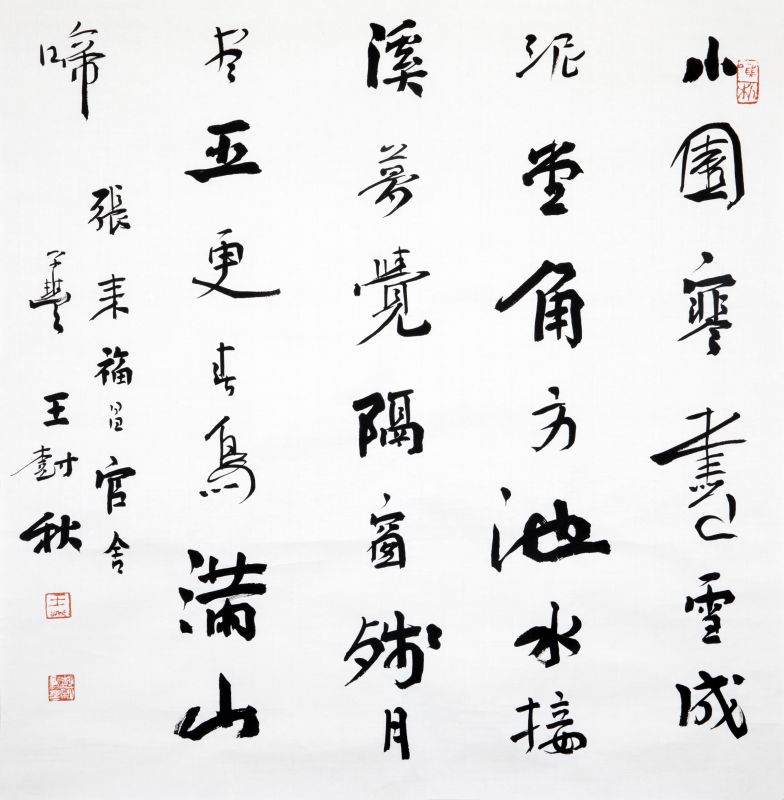 小園寒盡雪成
泥堂角方池水接
溪夢覺隔窗殘月
尽五更春鳥滿山
啼
張耒福昌官舍
王封秋